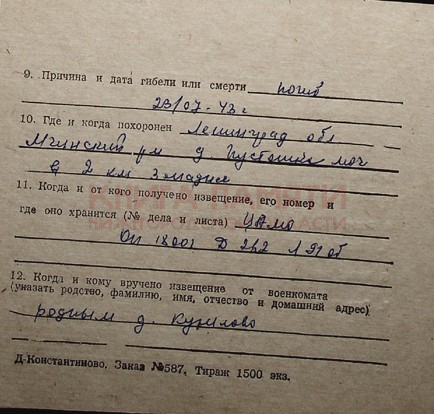 9. Причина и дата гибели или смерти погиб
23/07-43 г
10. Где и когда похоронен Ленинград обл
Мгинский рн д Пустошка
в 2 км западнее
11. Когда и от кого получено извещение, его номер и
где оно хранится (№ дела и листа) ЦАМО
Оп 18001 Д 262 Л 91 об
12. Когда и кому вручено извещение от военкомата
(указать родство, фамилию, имя, отчество и домашний адрес)
родным д. Курилово
Д-Константиново, Заказ №587, Тираж 1500 экз.